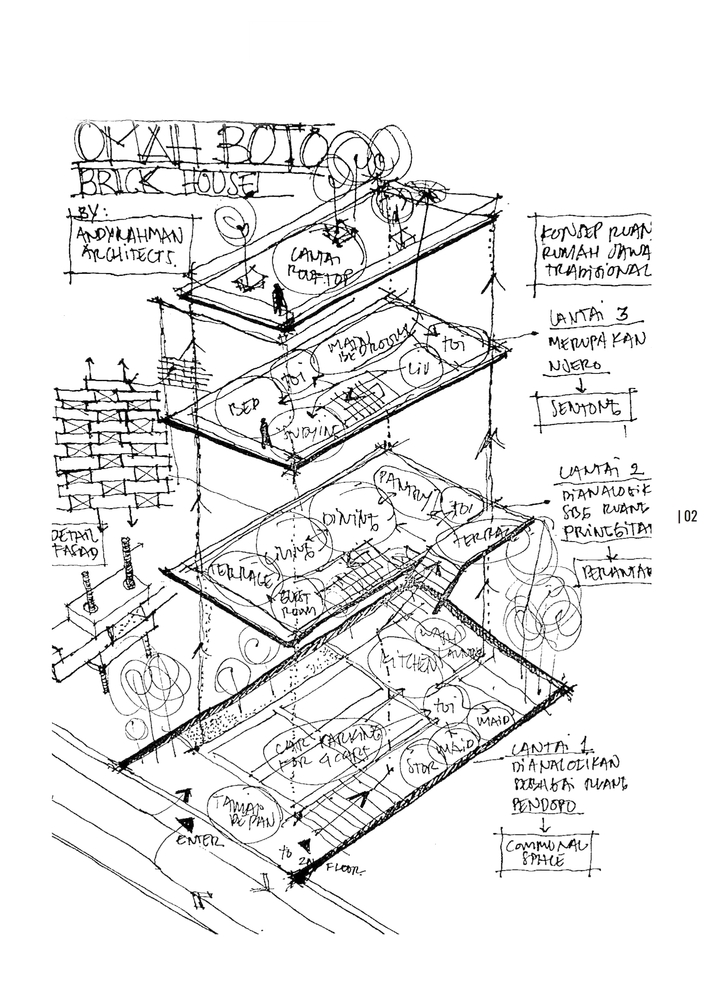 OMAH BOTO
BRICK HOUSE
BY:
ANDYRAHMAN
ARCHITECTS.
KONSEP RUAN
RUMAH JAWA
TRADISIONAL
LANTAI
ROOFTOP
LANTAI 3
MERUPAKAN
NJERO
SENTONG
MAIN
BEDROOM
TOI
LIV
TOI
BED
STUDYING
LANTAI 2
DIANALOGIK
SBG RUANG
PRINGGITAN
PERANTAR
PANTRY
TOI
DINING
TERRACE
LIVING
TERRACE
GUEST
ROOM
DETAIL
FASAD
102
KITCHEN
LAUNDRY
TOI
MAID
MAID
STOR
CAR PARKING
FOR 4 CAR
TAMAN
DEPAN
ENTER
TO 2ND FLOOR
LANTAI 1
DIANALOGIKAN
SEBAGAI RUANG
PENDOPO
COMMUNAL
SPACE